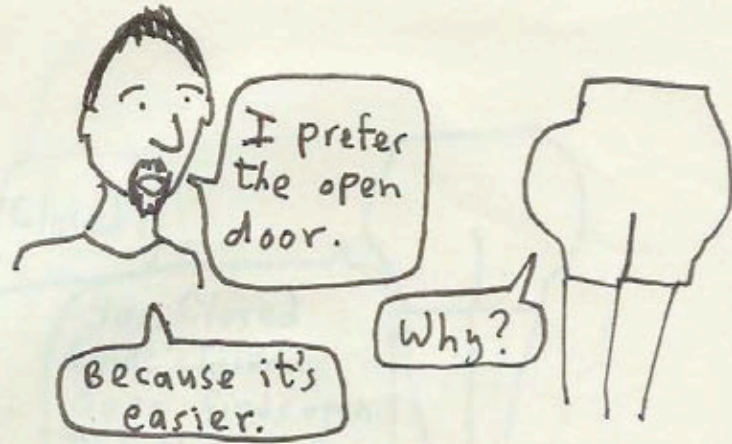 I prefer
the open
door.
Why?
Because it's
easier.